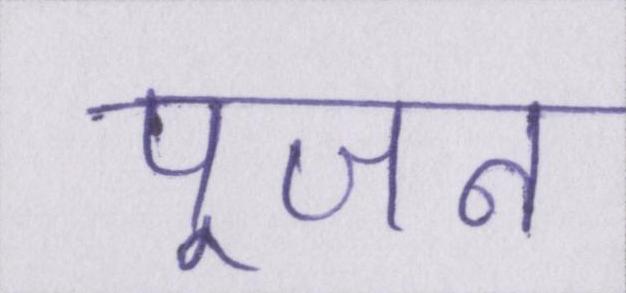 पूजन